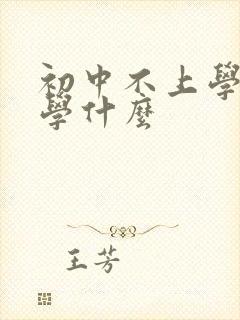 初中不上學
學什麼
王芳